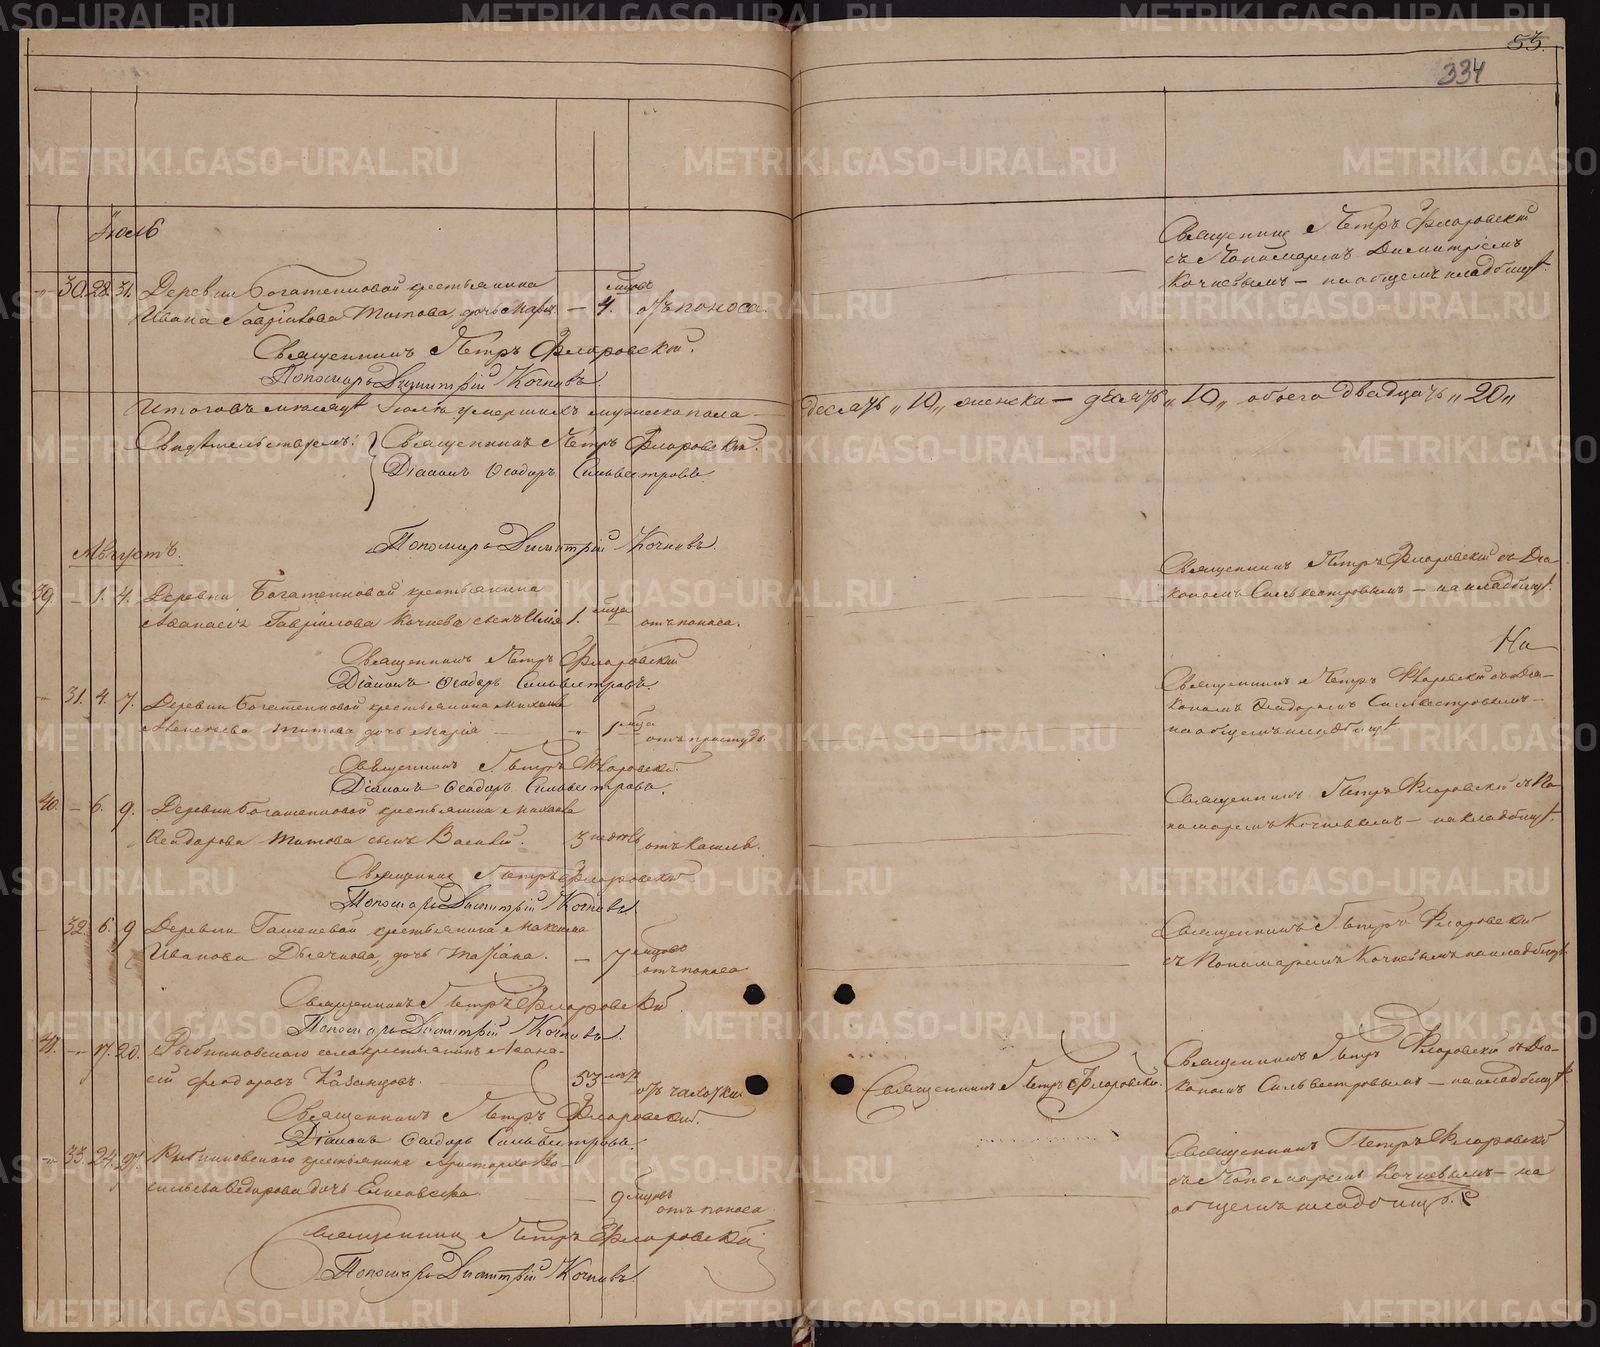 53.
334
Іюль
30. 28. 31. Деревни Богатенковой крестьянина
Ивана Гаврилова Титова, дочь — 4. мцовъ отъ поноса.
Священникъ Петръ Флоровскій.
Пономарь Димитрій Кочневъ.
Священникъ Петръ Флоровскій
съ Пономаремъ Димитріемъ
Кочневымъ — на общемъ кладбищѣ.
Итого въ мѣсяцѣ Іюлѣ умершихъ мужеска пола —
десять „10„ женска — десять „10„ обоего двадцать „20„
Свидѣтельствуемъ: Священникъ Петръ Флоровскій.
Діаконъ Ѳеодоръ Сильвестровъ
Пономарь Димитрій Кочневъ.
Августъ.
39. — 1. 4. Деревни Богатенковой крестьянина
Аѳанасія Гаврилова Кочнева сынъ Илія 1. мца отъ поноса.
Священникъ Петръ Флоровскій
Діаконъ Ѳеодоръ Сильвестровъ.
Священникъ Петръ Флоровскій съ Діа-
кономъ Сильвестровымъ — на кладбищѣ.
На
— 31. 4. 7. Деревни Богатенковой крестьянина Михаила
Титова дочь Марія — „ 1 мца отъ простуды.
Священникъ Петръ Флоровскій
Діаконъ Ѳеодоръ Сильвестровъ.
Священникъ Петръ Флоровскій съ Діа-
кономъ Ѳеодоромъ Сильвестровымъ —
на общемъ кладбищѣ
40. — 6. 9. Деревни Богатенковой крестьянина Михаила
Ѳедорова Титова сынъ Василій. 3 недѣль отъ кашля.
Священникъ Петръ Флоровскій
Пономарь Димитрій Кочневъ
Священникъ Петръ Флоровскій съ По-
номаремъ Кочневымъ — на кладбищѣ.
— 32. 6. 9 Деревни крестьянина Максима
Иванова дочь Татіана. — 7 мцовъ отъ поноса
Священникъ Петръ Флоровскій
Пономарь Димитрій Кочневъ.
Священникъ Петръ Флоровскій
съ Пономаремъ Кочневымъ на кладбищѣ
41. — 17. 20. Рыбниковскаго села крестьянинъ Аѳана-
сій Феодоровъ Казанцовъ. 53 лѣтъ отъ чахотки
Священникъ Петръ Флоровскій.
Діаконъ Ѳеодоръ Сильвестровъ.
Священникъ Петръ Флоровскій.
Священникъ Петръ Флоровскій съ Діа-
кономъ Сильвестровымъ — на кладбищѣ
— 33. 24. 27. Рыбниковскаго крестьянина Аристарха Ва-
сильева Ѳедорова дочь Елисавета — 9 мцовъ отъ поноса
Священникъ Петръ Флоровскій
Пономарь Димитрій Кочневъ.
Священникъ Петръ Флоровскій
съ Пономаремъ Кочневымъ — на
общемъ кладбищѣ.
METRIKI.GASO-URAL.RU